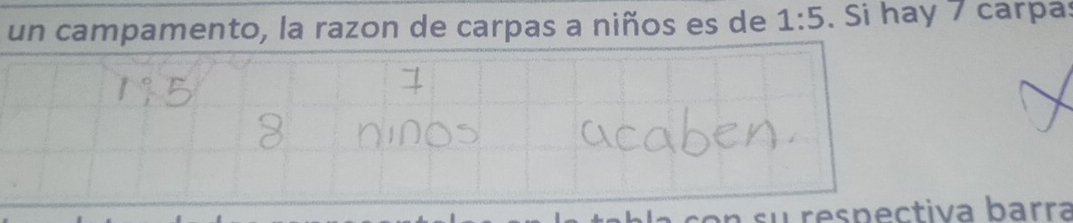 un campamento, la razon de carpas a niños es de 1:5. Si hay 7 carpas
1:5 7
8 ninos acaben.
con su respectiva barra